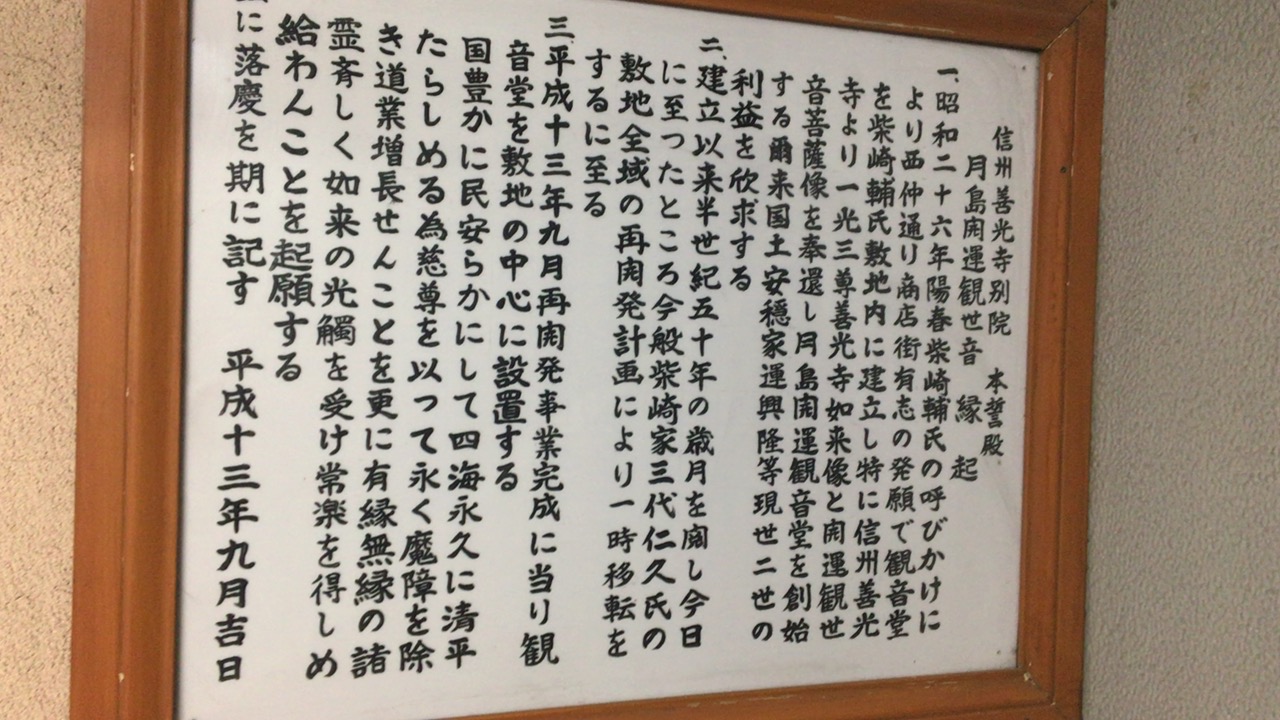 信州善光寺別院 本誓殿
月島開運観世音 縁起
一、昭和二十六年陽春柴崎輔氏の呼びかけに
より西仲通り商店街有志の発願で観音堂
を柴崎輔氏敷地内に建立し特に信州善光
寺より一光三尊善光寺如来像と開運観世
音菩薩像を奉還し月島開運観音堂を創始
する爾来国土安穏家運興隆等現世二世の
利益を欣求する
二、建立以来半世紀五十年の歳月を閲し今日
に至ったところ今般柴崎家三代仁久氏の
敷地全域の再開発計画により一時移転を
するに至る
三、平成十三年九月再開発事業完成に当り観
音堂を敷地の中心に設置する
国豊かに民安らかにして四海永久に清平
たらしめる為慈尊を以って永く魔障を除
き道業増長せんことを更に有縁無縁の諸
霊斉しく如来の光觸を受け常楽を得しめ
給わんことを起願する
に落慶を期に記す 平成十三年九月吉日